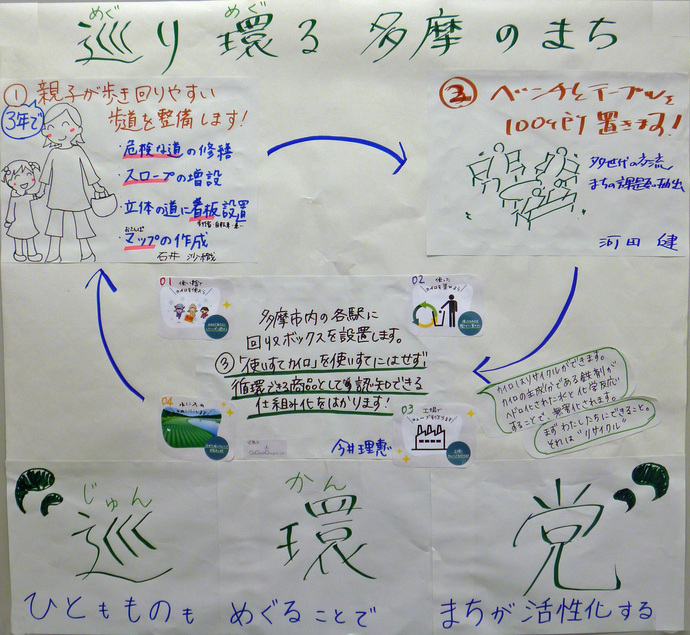 めぐ めぐ
巡り環る多摩のまち
① 親子が歩き回りやすい
3年で
歩道を整備します!
・危険な道の修繕
・スロープの増設
・立体の道に看板設置
・マップの作成
石井 沙織
② ベンチとテーブルを
100ヶ所置きます!
多世代の交流
まちの課題の抽出
河田 健
01
使い捨て
カイロを使おう!
02
使った
多摩市内の各駅に
回収ボックスを設置します。
③「使いすてカイロ」を使いすてにはせず、
循環できる商品として再認知できる
仕組み化をはかります!
04
03
工場で
今井理恵
カイロはリサイクルができます。
カイロの主成分である鉄剤が
ヘドロ化された水と化学反応
することで、無害化されます。
まずわたしたちにできること。
それは"リサイクル"
じゅん かん
巡 環 党
ひともものも めぐることで まちが活性化する